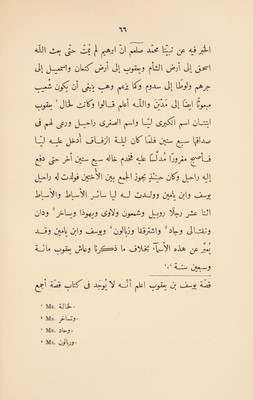 ٦٦
الخبر فيه عن نبيّنا محمّد صلعم انّ ابرهيم لم يَمُتْ حتّى بعث اللّه
اسحق إلى أرض الشأم ويعقوب إلى أرض كنعان واسمعيل إلى
جرهم ولوطًا إلى سدوم وكما يزعم وهب ينبغى أن يكون شُعيب
مبعوثًا ايضًا إلى مَدْيَن واللّه أعلم قالوا وكانت لخال¹ يعقوب
ابنتان اسم الكبرى ليّا واسم الصغرى راحيل ورعى لهم فى
صداقها سبع سنين فلمّا كان ليلة الزفاف أُدخل عليه ليّا
فأصبح مغرورًا مُدلَّسًا عليه فخدم خاله سبع سنين أُخر حتى دفع
إليه راحيل وكان حينئذٍ يجوز الجمع بين الأُختين فولدت له راحيل
يوسف وابن يامين وولدت له ليّا سائر الأسباط والأسباط
اثنا عشر رجلًا روبيل وشمعون ولاوى ويهوذا ويساخر² ودان
ونفتالى وجاد³ واشترقفا وزبالون⁴ ويوسف وابن يامين وقد
يُعبَّر عن هذه الأسمآء بخلاف ما ذكرنا وعاش يعقوب مائة
وسبعين سنة ،،
قصّة يوسف بن يعقوب اعلم أنّه لا يُوجَد فى كتاب قصّة أجمع
¹ Ms. لخالة.
² Ms. وتساخر.
³ Ms. وحاد.
⁴ Ms. وربالون.